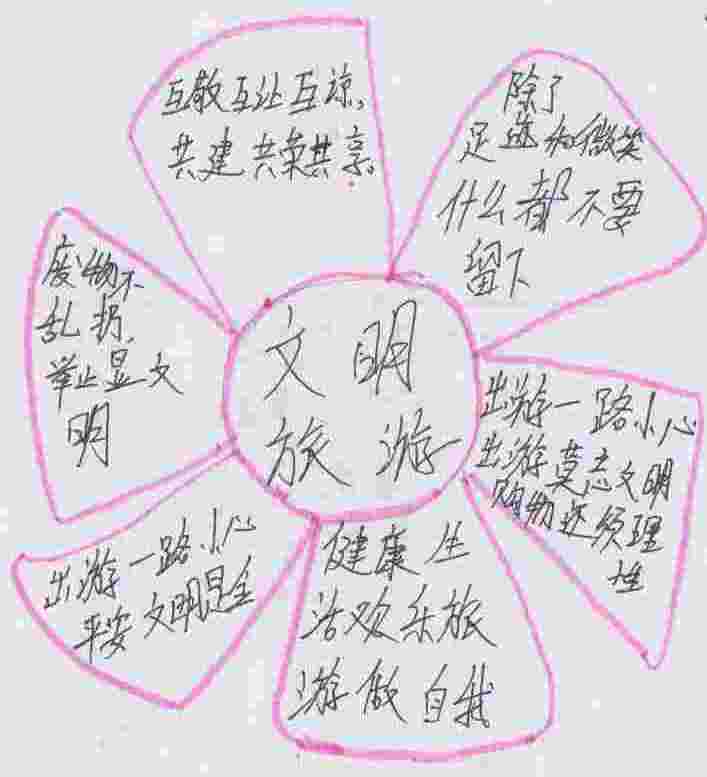 互敬互让互谅,
共建共荣共享。
除了
足迹和微笑
什么都不要
留下
废物不
乱扔,
举止显文
明
文明
旅游
出游一路小心
出游莫忘文明
购物还须理
性
出游一路小心
平安文明是金
健康生
活欢乐旅
游做自我